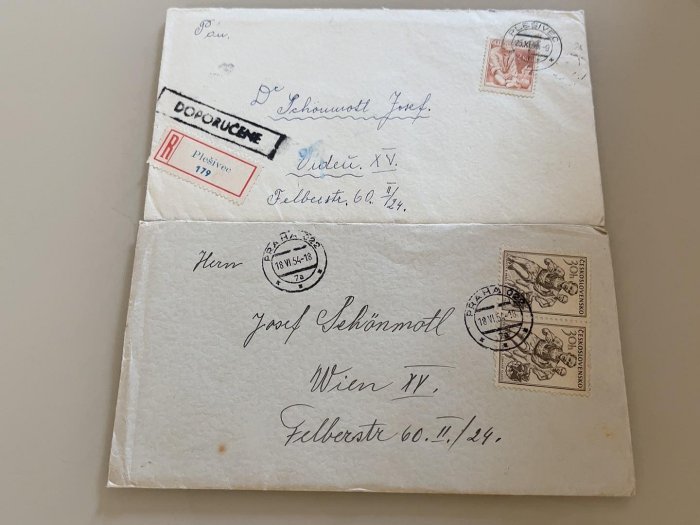 Pán.
PLEŠIVEC
Dr Schönmotl Josef.
DOPORUČENE
R
Plešivec
179
Videň. XV.
Felberstr. 60. II/24.
Herrn
PRAHA 022
18 VI.54-18
7a
PRAHA 022
18 VI.54-18
7a
ČESKOSLOVENSKO
30h
ČESKOSLOVENSKO
30h
Josef Schönmotl
Wien XV.
Felberstr 60.II./24.